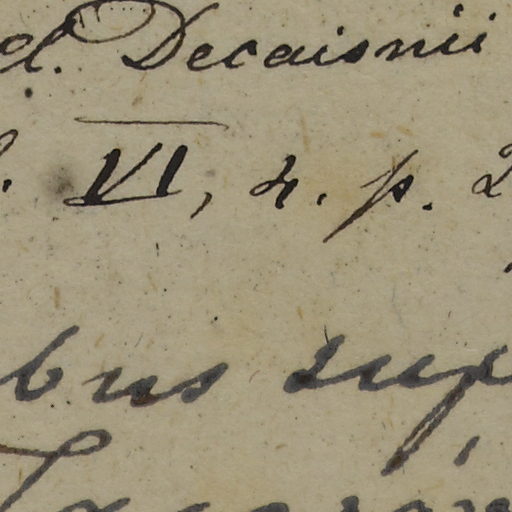 d. Decaisnii
. VI, 4. p. 2
bus sup